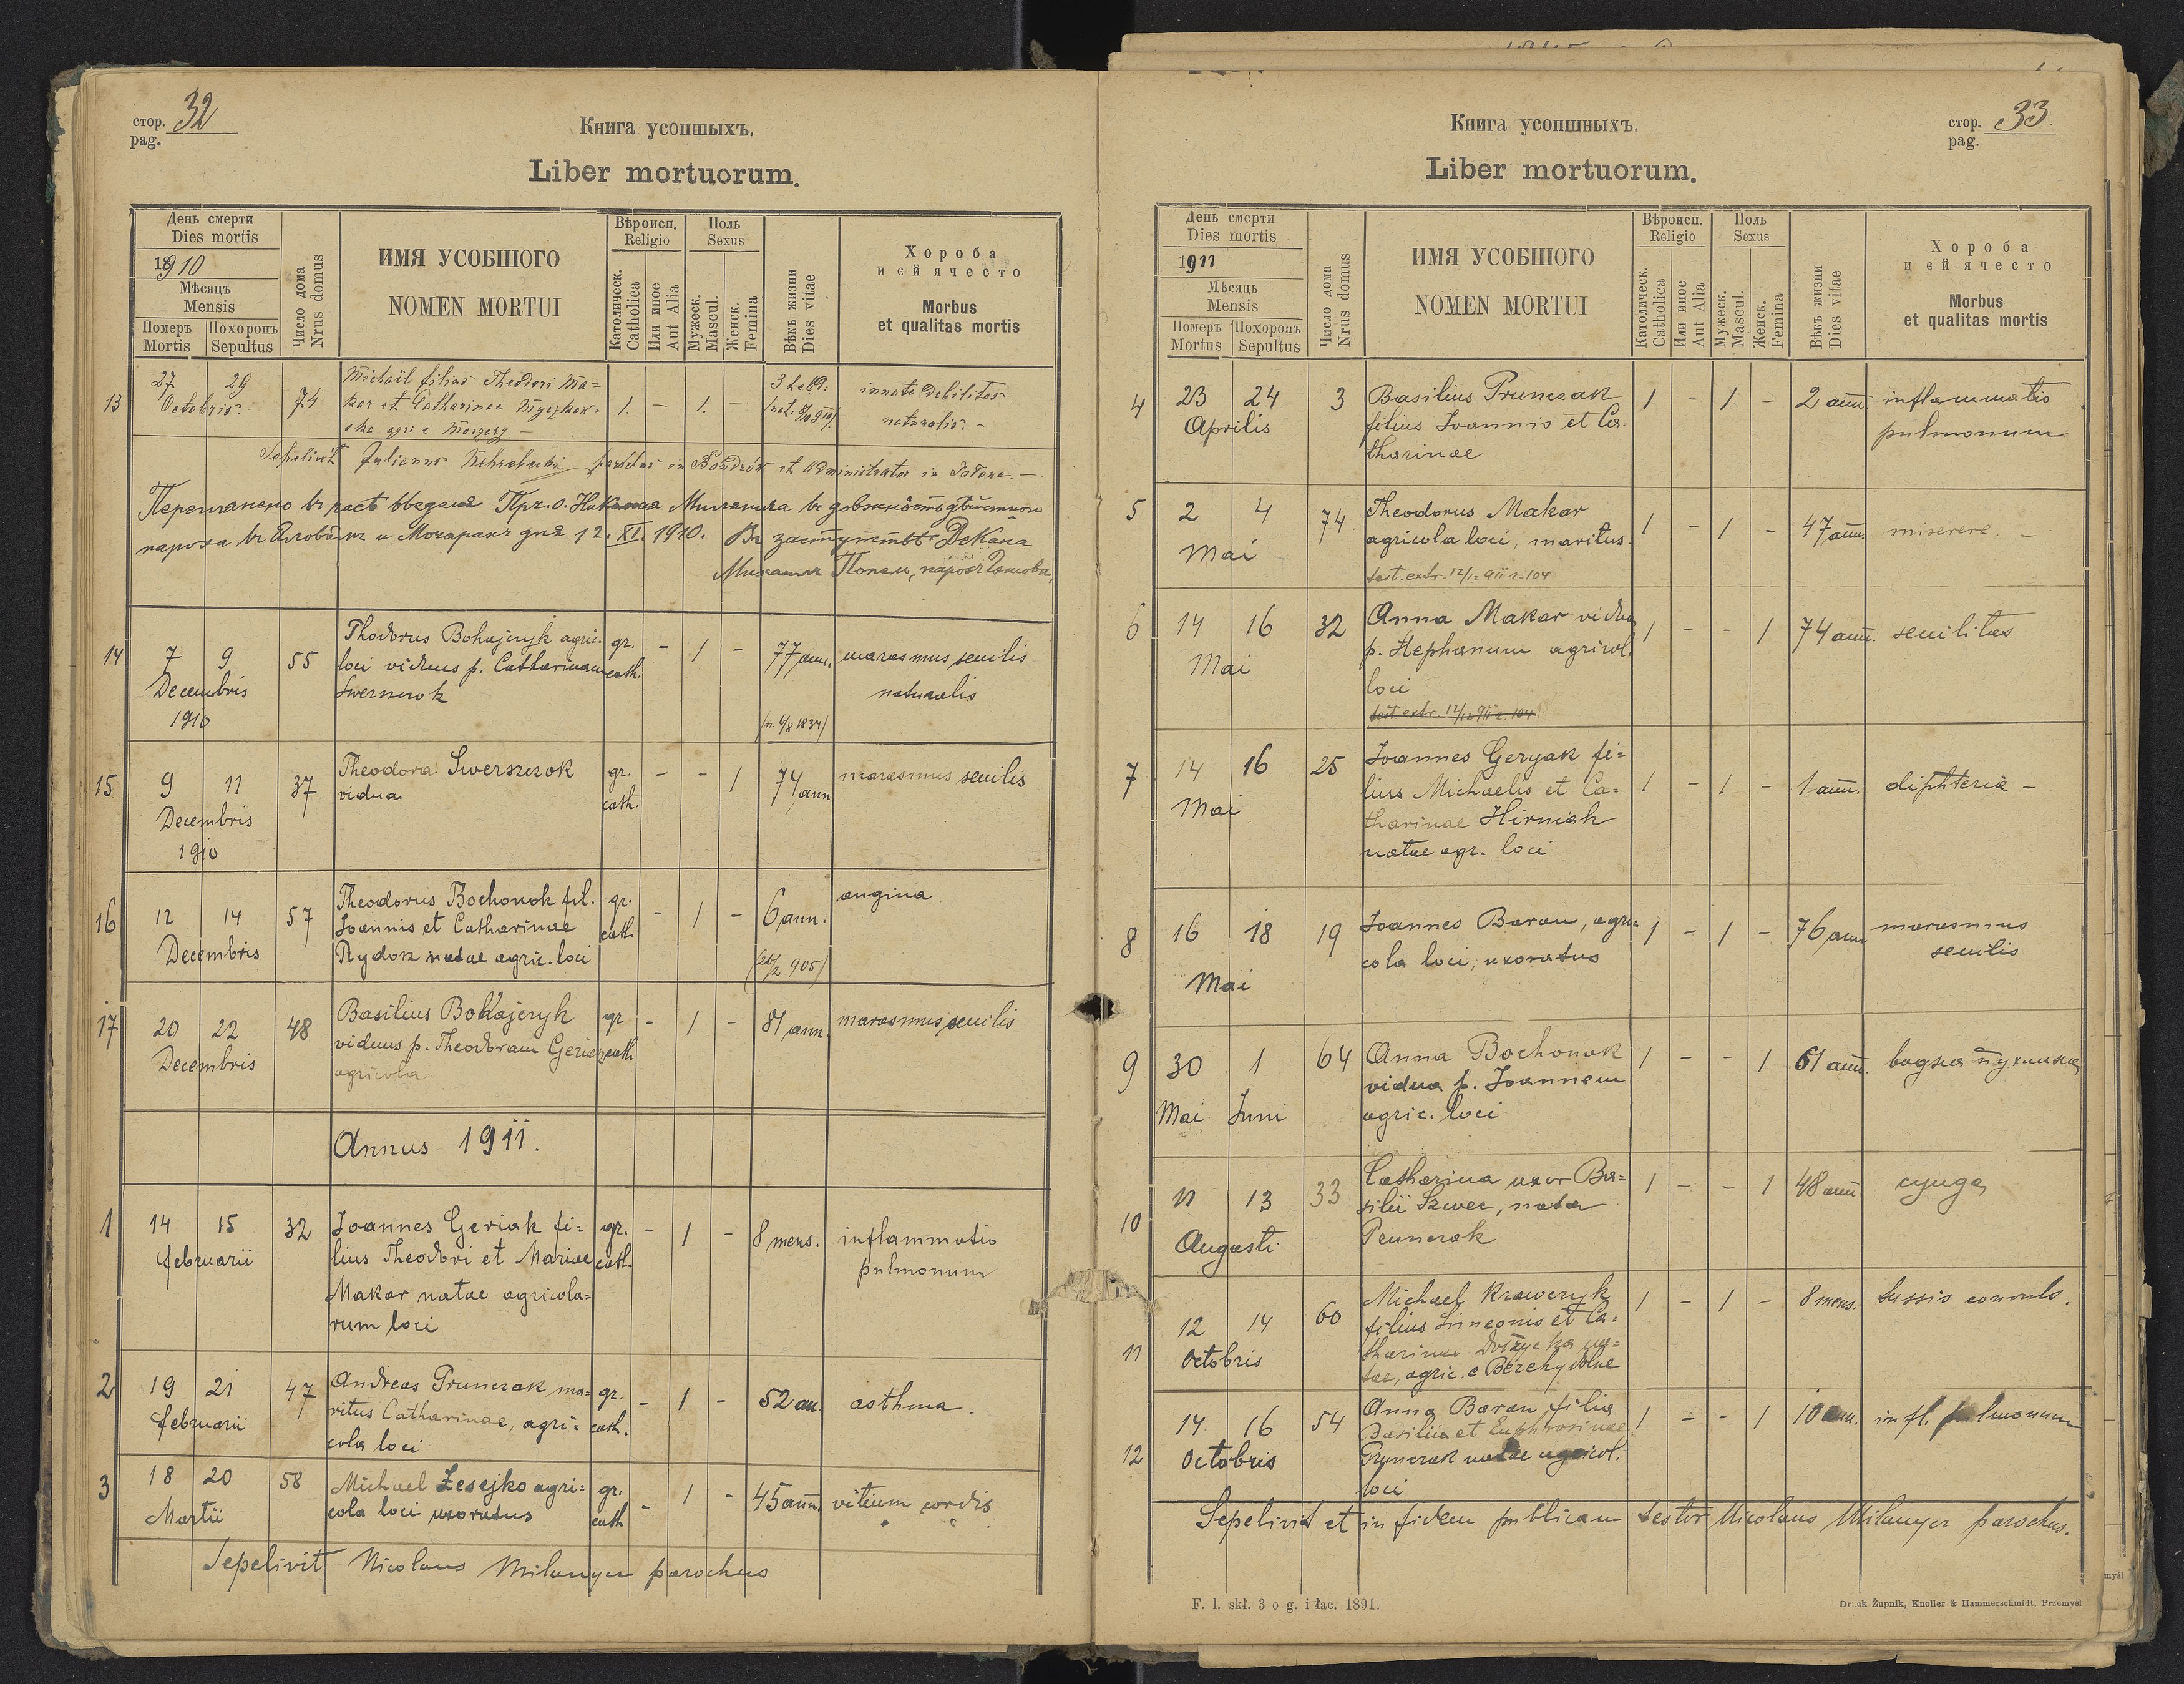 стор. 32
pag.
Книга усопшыхъ.
Liber mortuorum.
День смерти
Dies mortis
1910
Мѣсяцъ
Mensis
Померъ Похоронъ
Mortis Sepultus
Число дома
Nrus domus
ИМЯ УСОБШОГО
NOMEN MORTUI
Вѣроисп.
Religio
Католическ.
Catholica
Или иное
Aut Alia
Поль
Sexus
Мужеск.
Mascul.
Женск.
Femina
Вѣкъ жизни
Dies vitae
Хороба
и єй ячесто
Morbus
et qualitas mortis
13 27 29 Octobris 74
Michaël filius Theodori Ma=
kar et Catharinae
1. - 1. - 3
innata debilitas
naturalis. -
Sepelivit Julianus parochus in et administrator in
12. XI. 1910. Декана
14 7 9 Decembris 1910 55
Thodorus Bohajczyk agric.
loci viduus p. Catharinam
Swerszczok
gr. cath. - 1 - 77 ann.
marasmus senilis
naturalis
15 9 11 Decembris 1910 37
Theodora Swerszczok
vidua
gr. cath. - - 1 74 ann
marasmus senilis
16 12 14 Decembris 57
Theodorus Bochonok fil.
Joannis et Catharinae
Rydosz natae agric. loci
gr. cath. - 1 - 6 ann.
(26/2 905)
angina
17 20 22 Decembris 48
Basilius Bohajczyk
viduus p. Theodoram
agricola
gr. cath. - 1 - 81 ann.
marasmus senilis
Annus 1911.
1 14 15 februarii 32
Joannes Geriak fi=
lius Theodori et Mariae
Makar natae agricola=
rum loci
gr. cath. - 1 - 8 mens.
inflammatio
pulmonum
2 19 21 februarii 47
Andreas Prunczak ma=
ritus Catharinae, agri=
cola loci
gr. cath. - 1 - 52 an.
asthma.
3 18 20 Martii 58
Michael Łesejko agri=
cola loci uxoratus
gr. cath - 1 - 45 ann.
vitium cordis
Sepelivit Nicolaus Milanycz parochus
Книга усопшныхъ.
стор. 33.
pag.
Liber mortuorum.
День смерти
Dies mortis
1911
Мѣсяць
Mensis
Померъ Похоронъ
Mortus Sepultus
Число дома
Nrus domus
ИМЯ УСОБШОГО
NOMEN MORTUI
Вѣроисп.
Religio
Католическ.
Catholica
Или иное
Aut Alia
Поль
Sexus
Мужеск.
Mascul.
Женск.
Femina
Вѣкъ жизни
Dies vitae
Хороба
и єй ячесто
Morbus
et qualitas mortis
4 23 24 Aprilis 3
Basilius Prunczak
filius Joannis et Ca=
tharinae
1 - 1 - 2 ann.
inflammatio
pulmonum
5 2 4 Mai 74
Theodorus Makar
agricola loci, maritus.
test. extr. 12/12 911 z. 104
1 - 1 - 47 ann.
miserere. -
6 14 16 Mai 32
Anna Makar vidua
p. Stephanum agricol.
loci
test. extr. 12/12 911 z. 104
1 - - 1 74 ann.
senilitas
7 14 16 Mai 25
Joannes Geryak fi=
lius Michaelis et Ca=
tharinae Hirniak
natae agr. loci
1 - 1 - 1 ann.
diphteria -
8 16 18 Mai 19
Joannes Baran, agri=
cola loci, uxoratus
1 - 1 - 76 ann
marasmus
senilis
9 30 1 Mai Juni 64
Anna Bochonok
vidua p. Joannem
agric. loci
1 - - 1 61 ann.
водна пухлина
10 11 13 Augusti 33
Catharina uxor Ba=
silii Szwec, nata
Prunczak
1 - - 1 48 ann
11 12 14 Octobris 60
Michael Krawczyk
filius Simeonis et Ca=
tharinae na=
tae, agric. e Berehy dolne
1 - 1 - 8 mens.
tussis convuls.
12 14 16 Octobris 54
Anna Baran filia
Basilii et Euphrosinae
Prunczak natae agricol.
loci
1 - - 1 10 ann.
infl. pulmonum
Sepelivit et in fidem publicam testor Nicolaus Milanycz parochus.
F. l. skł. 3 o g. i łac. 1891.
Żupnik, Knoller & Hammerschmidt, Przemyśl